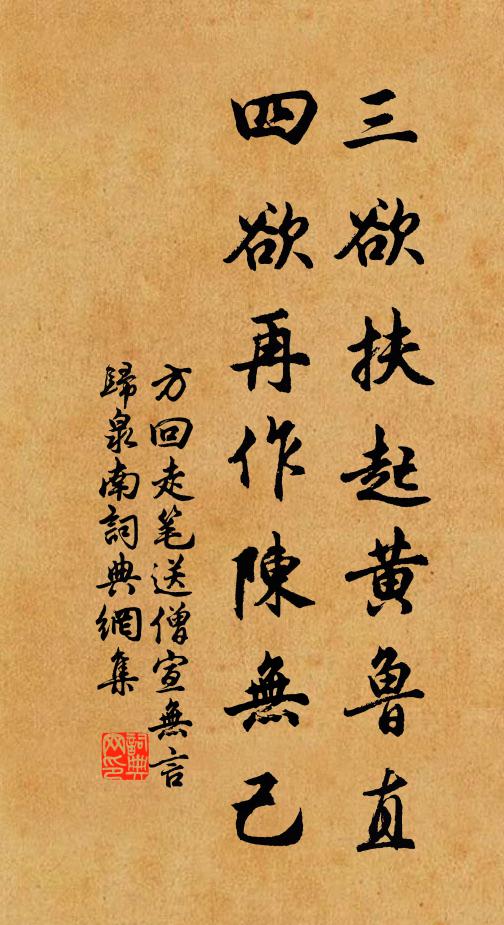 三欲扶起黃魯直
四欲再作陳無己
方回走笔送僧宣無言
歸泉南詞典網集
詞典网印